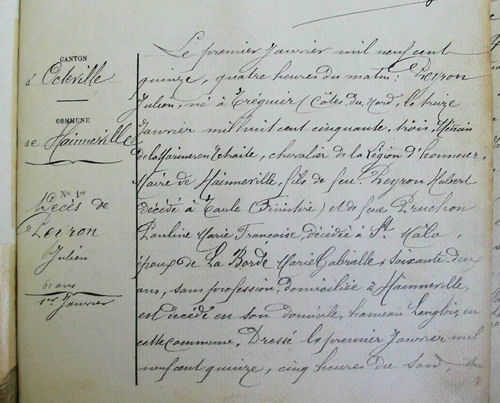 CANTON
d'Octeville
COMMUNE
de Hainneville
No 1er
Décès de
Peyron
Julien
61 ans
1er Janvier
Le premier Janvier mil neuf cent
quinze, quatre heures du matin: Peyron
Julien, né à Tréguier (Côtes du Nord, le treize
Janvier mil huit cent cinquante trois, Médecin
de la Marine en retraite, chevalier de la Légion d'honneur,
Maire de Hainneville, fils de feu Peyron Hubert
décédé à Taulé (Finistère) et de feue Pruchon
Pauline Marie Françoise, décédée à St Malo
époux de La Borde Marie Gabrielle, soixante deux
ans, sans profession, domiciliée à Hainneville,
est décédé en son domicile, hameau Langlois, en
cette commune. Dressé le premier Janvier mil
neuf cent quinze, cinq heures du soir,